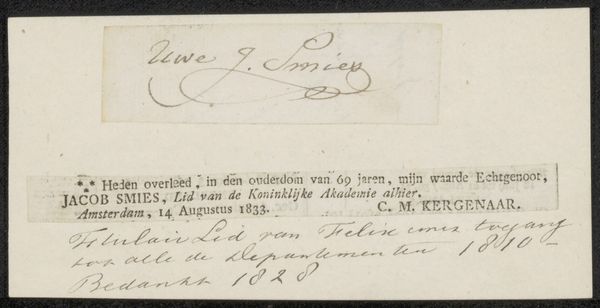 Uwe J. Smies
*** Heden overleed, in den ouderdom van 69 jaren, mijn waarde Echtgenoot,
JACOB SMIES, Lid van de Koninklijke Akademie alhier.
Amsterdam, 14 Augustus 1833. C. M. KERGENAAR.
Titulair Lid van Felix meris toegang
tot alle de Departementen 1810 –
Bedankt 1828